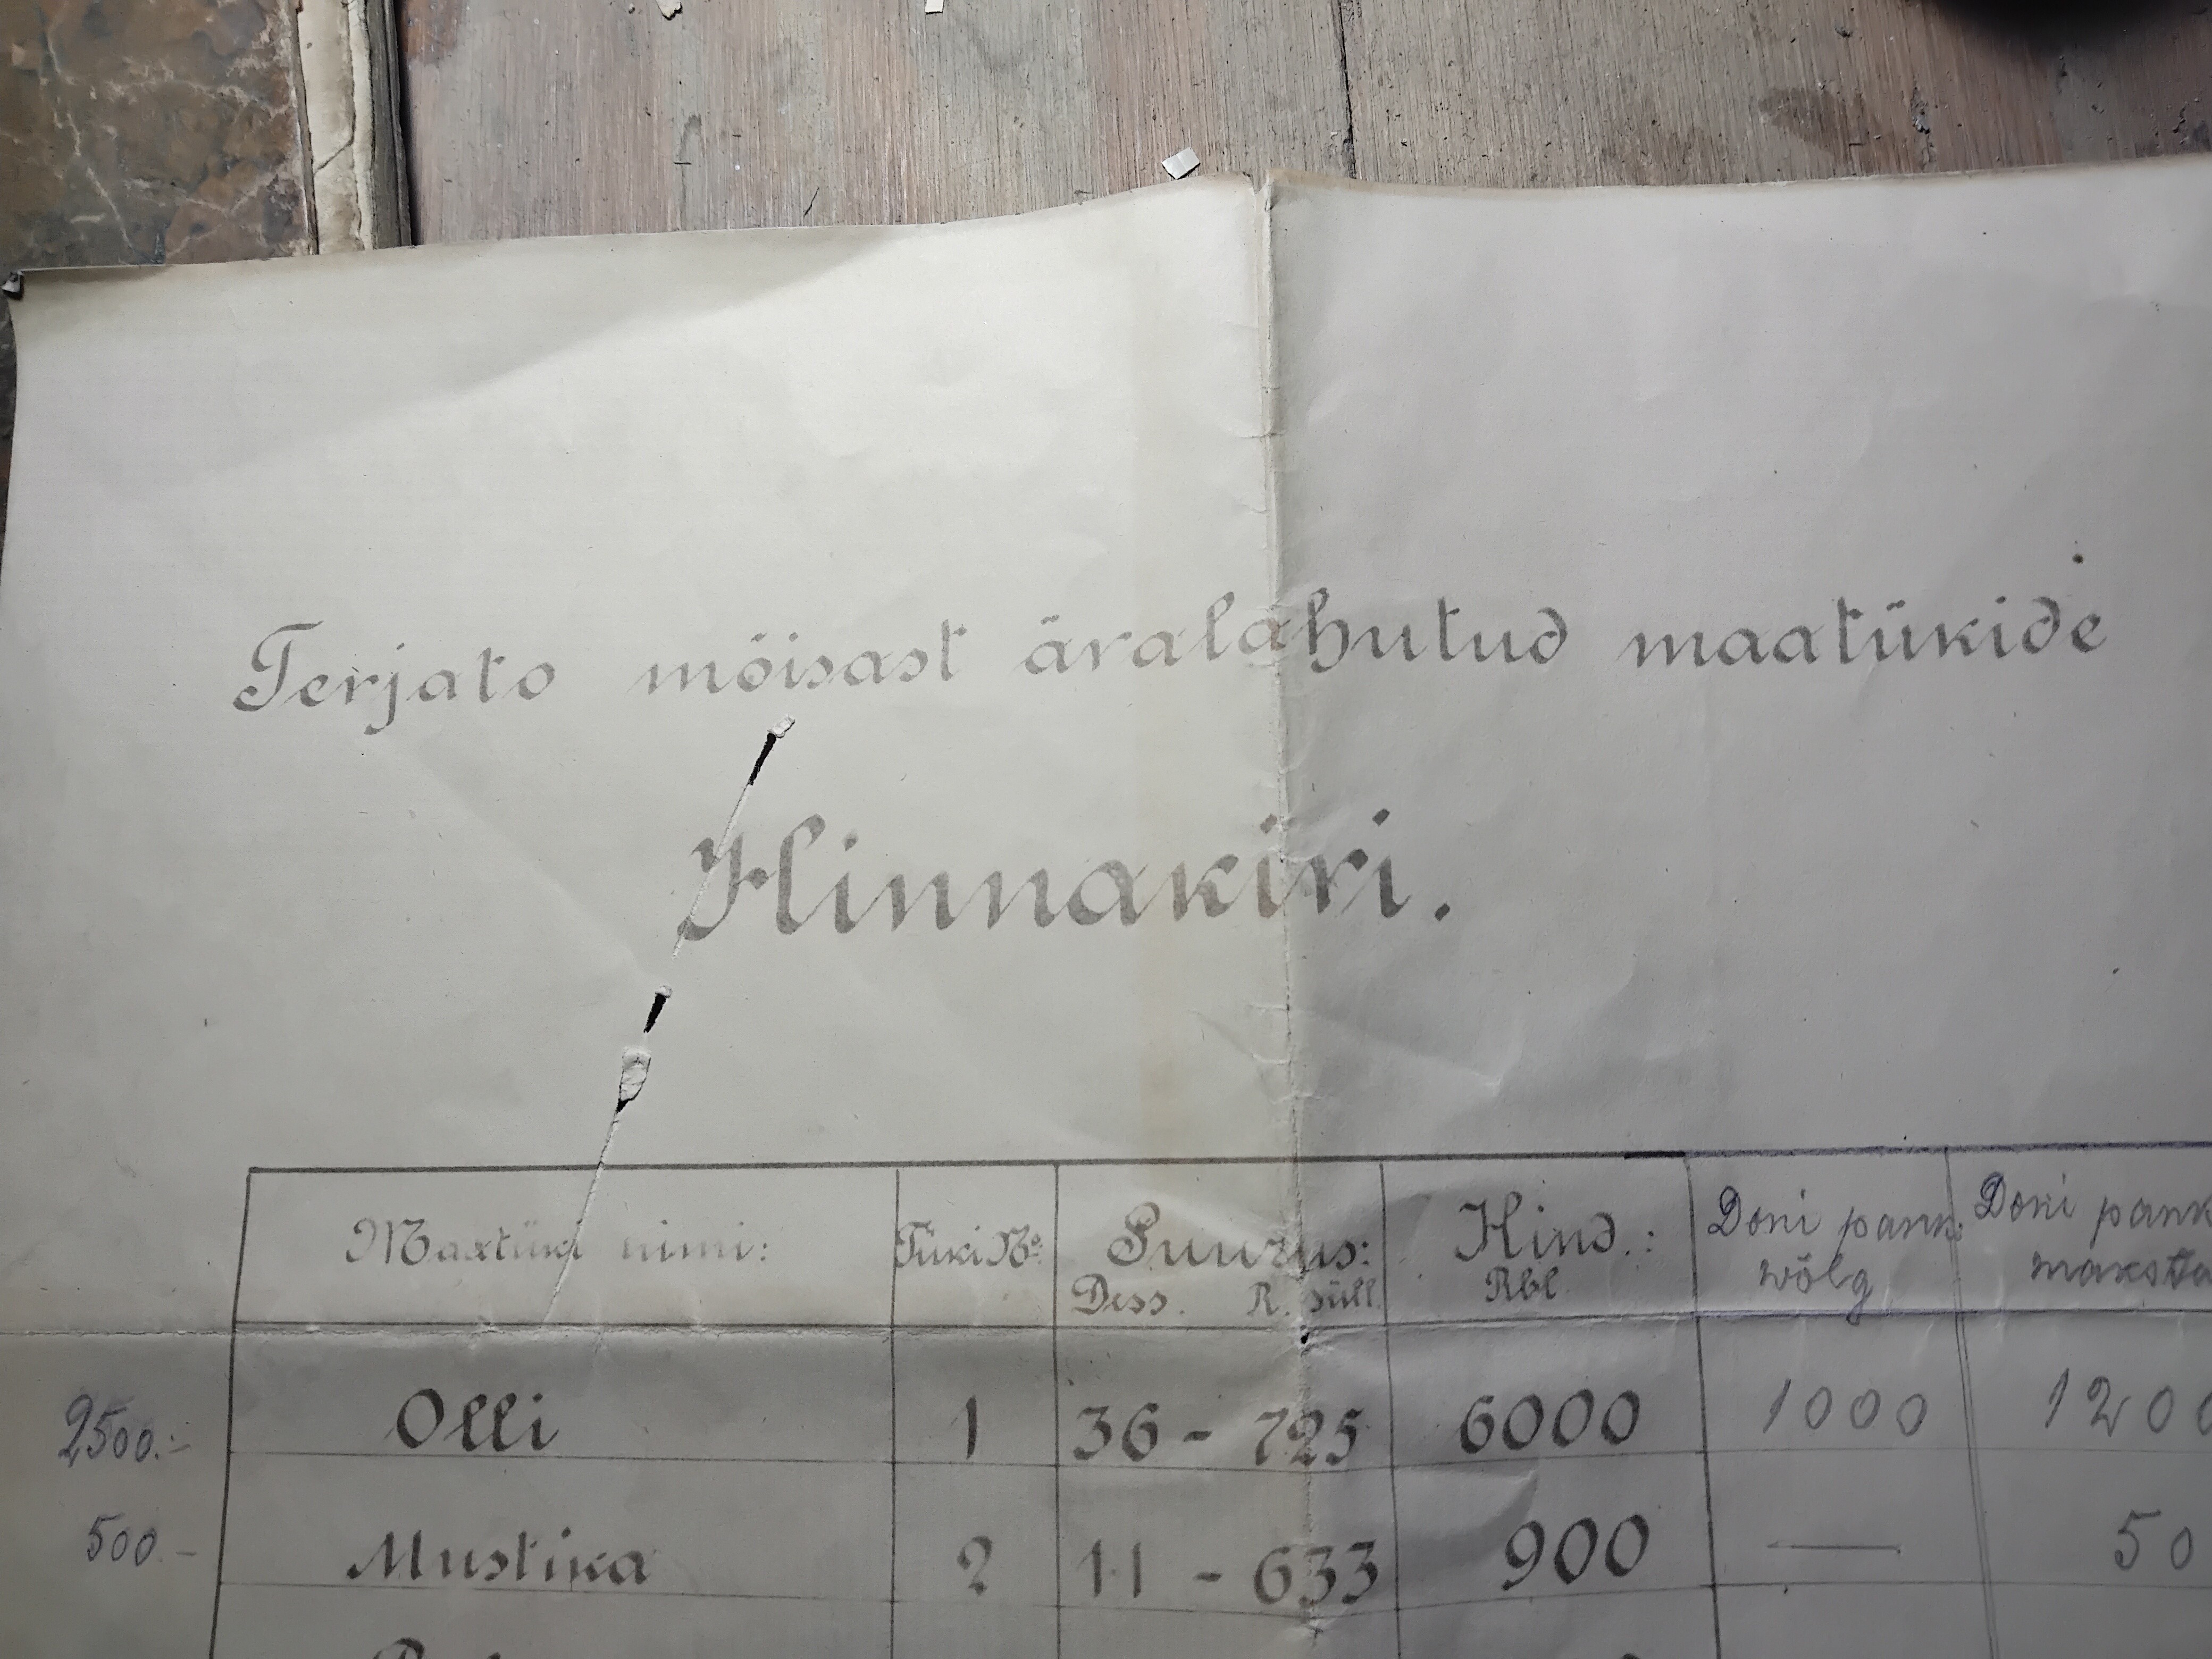 Terjato mõisast äralahutud maatükide
Hinnakiri.
Maatüki nimi: Tüki No. Suurus: Hind.: Doni pank. Doni pank
Dess. R. süll. Rbl. wõlg
2500.- Olli 1 36 - 725 6000 1000 1200
500.- Mustika 2 11 - 633 900 — 50